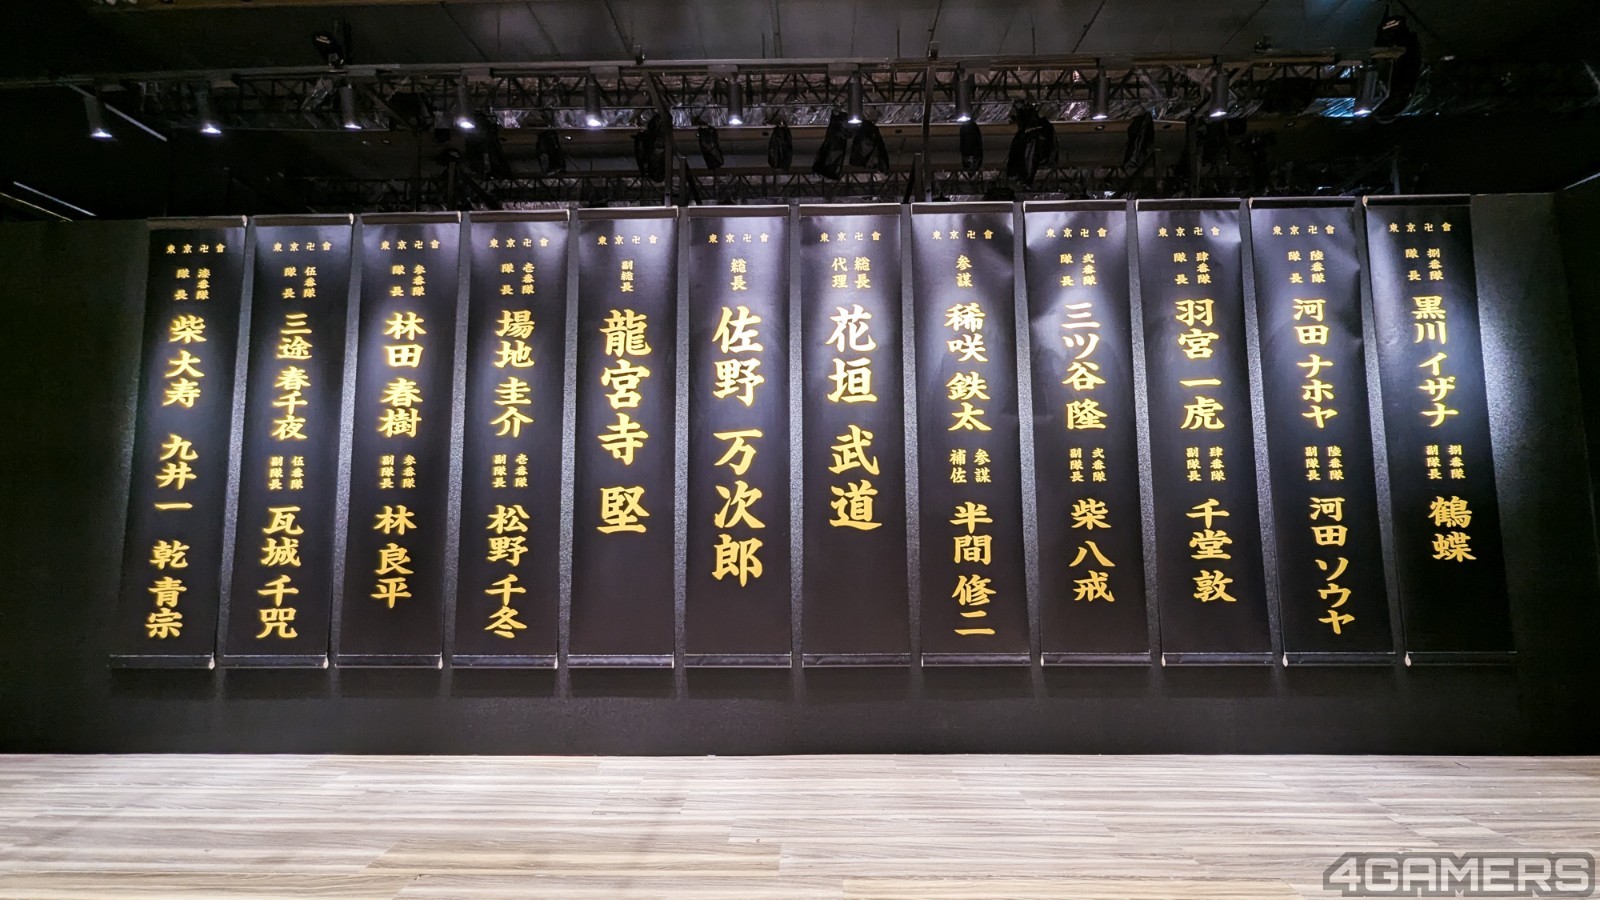 東京卍會
漆番隊
隊長
柴大寿 九井一 乾青宗
東京卍會
伍番隊
隊長
三途 春千夜
伍番隊
副隊長
瓦城 千咒
東京卍會
参番隊
隊長
林田 春樹
参番隊
副隊長
林 良平
東京卍會
壱番隊
隊長
場地 圭介
壱番隊
副隊長
松野 千冬
東京卍會
副総長
龍宮寺 堅
東京卍會
総長
佐野 万次郎
東京卍會
総長
代理
花垣 武道
東京卍會
参謀
稀咲 鉄太
参謀
補佐
半間 修二
東京卍會
弐番隊
隊長
三ツ谷 隆
弐番隊
副隊長
柴 八戒
東京卍會
肆番隊
隊長
羽宮 一虎
肆番隊
副隊長
千堂 敦
東京卍會
陸番隊
隊長
河田 ナホヤ
陸番隊
副隊長
河田 ソウヤ
東京卍會
捌番隊
隊長
黒川 イザナ
捌番隊
副隊長
鶴蝶
4GAMERS